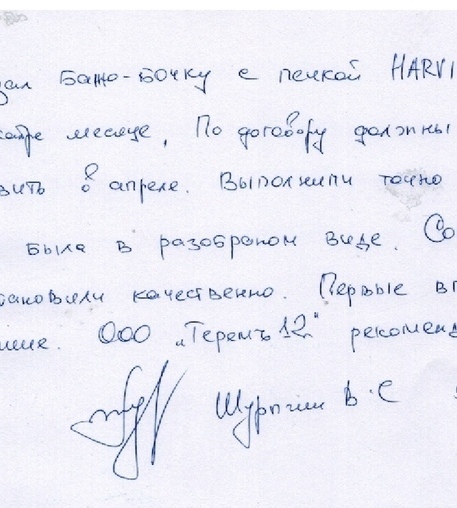 зал Баню-бочку с печкой HARVI
месяце, По договору должны
вить в апреле. Выполнили точно
была в разобраном виде. Со
тановили качественно. Первые вп
ООО „Теремъ 12" рекоменд
В.С